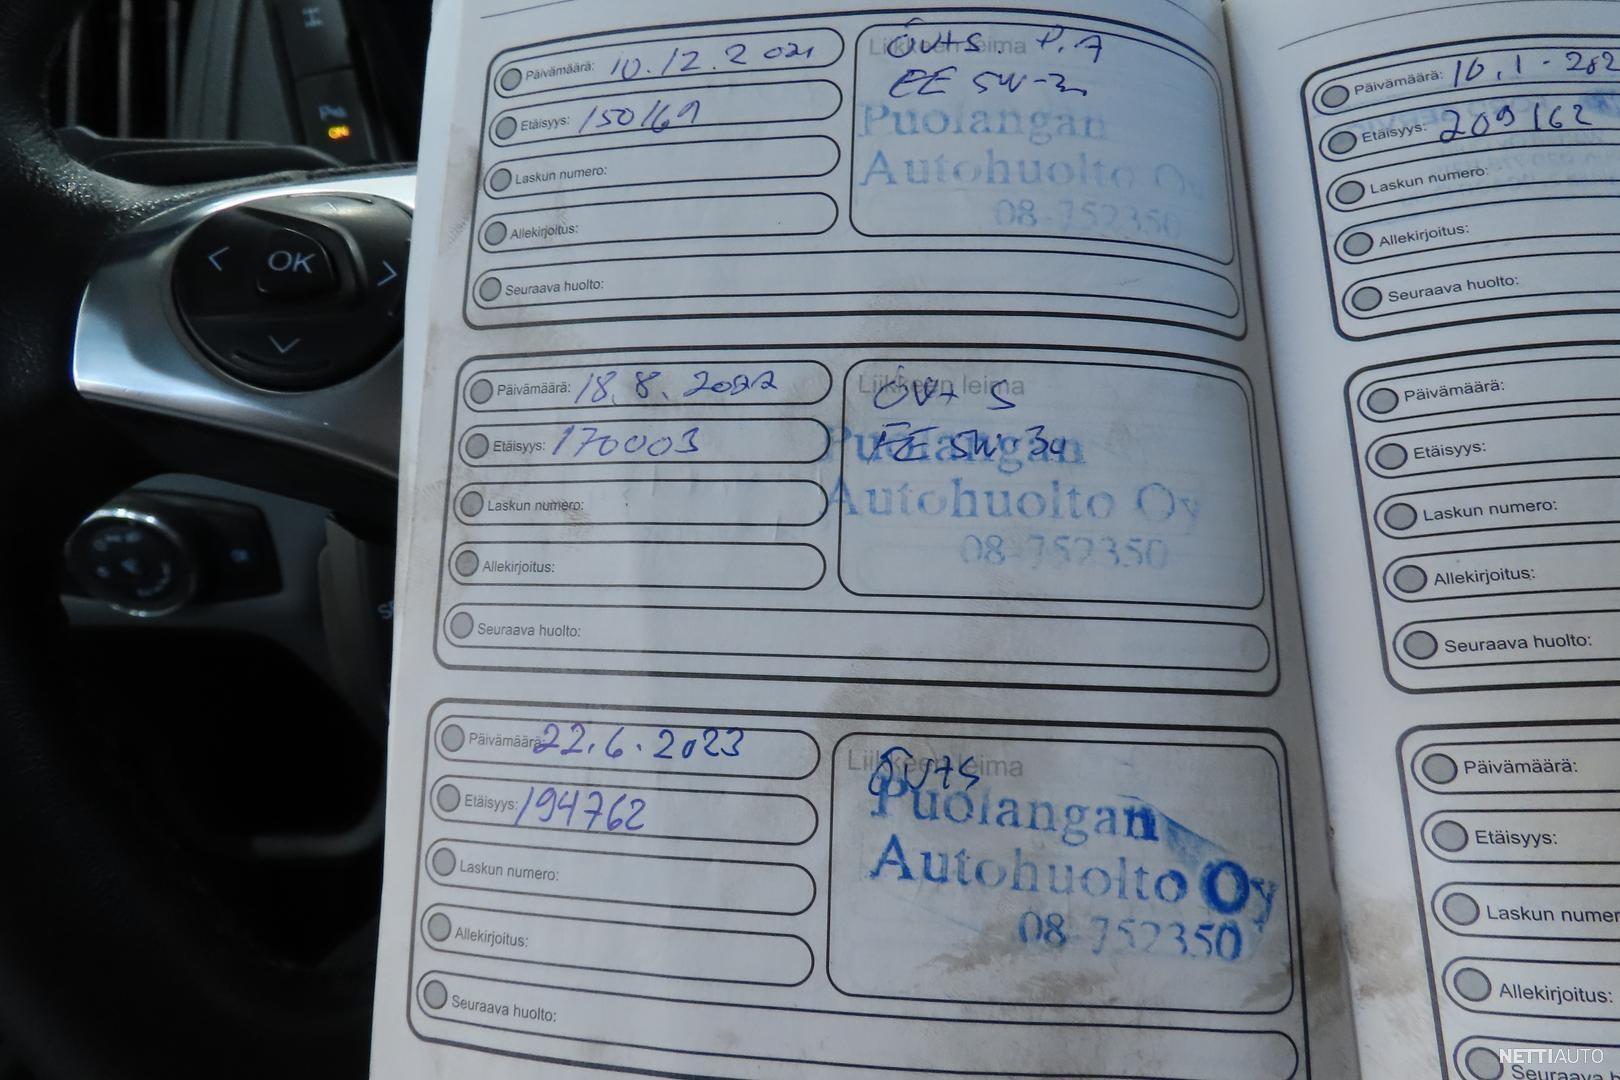 Päivämäärä: 10.12.2021
Etäisyys: 150169
Laskun numero:
Allekirjoitus:
Seuraava huolto:
Liikkeen leima
Puolangan
Autohuolto Oy
08-752350
Päivämäärä: 18.8.2022
Etäisyys: 170003
Laskun numero:
Allekirjoitus:
Seuraava huolto:
Liikkeen leima
Puolangan
Autohuolto Oy
08-752350
Päivämäärä: 22.6.2023
Etäisyys: 194762
Laskun numero:
Allekirjoitus:
Seuraava huolto:
Liikkeen leima
Puolangan
Autohuolto Oy
08-752350
Päivämäärä: 10.1-202
Etäisyys: 209162
Laskun numero:
Allekirjoitus:
Seuraava huolto:
Päivämäärä:
Etäisyys:
Laskun numero:
Allekirjoitus:
Seuraava huolto:
Päivämäärä:
Etäisyys:
Laskun numer
Allekirjoitus:
Seuraava h
OK
ON
NETTIAUTO